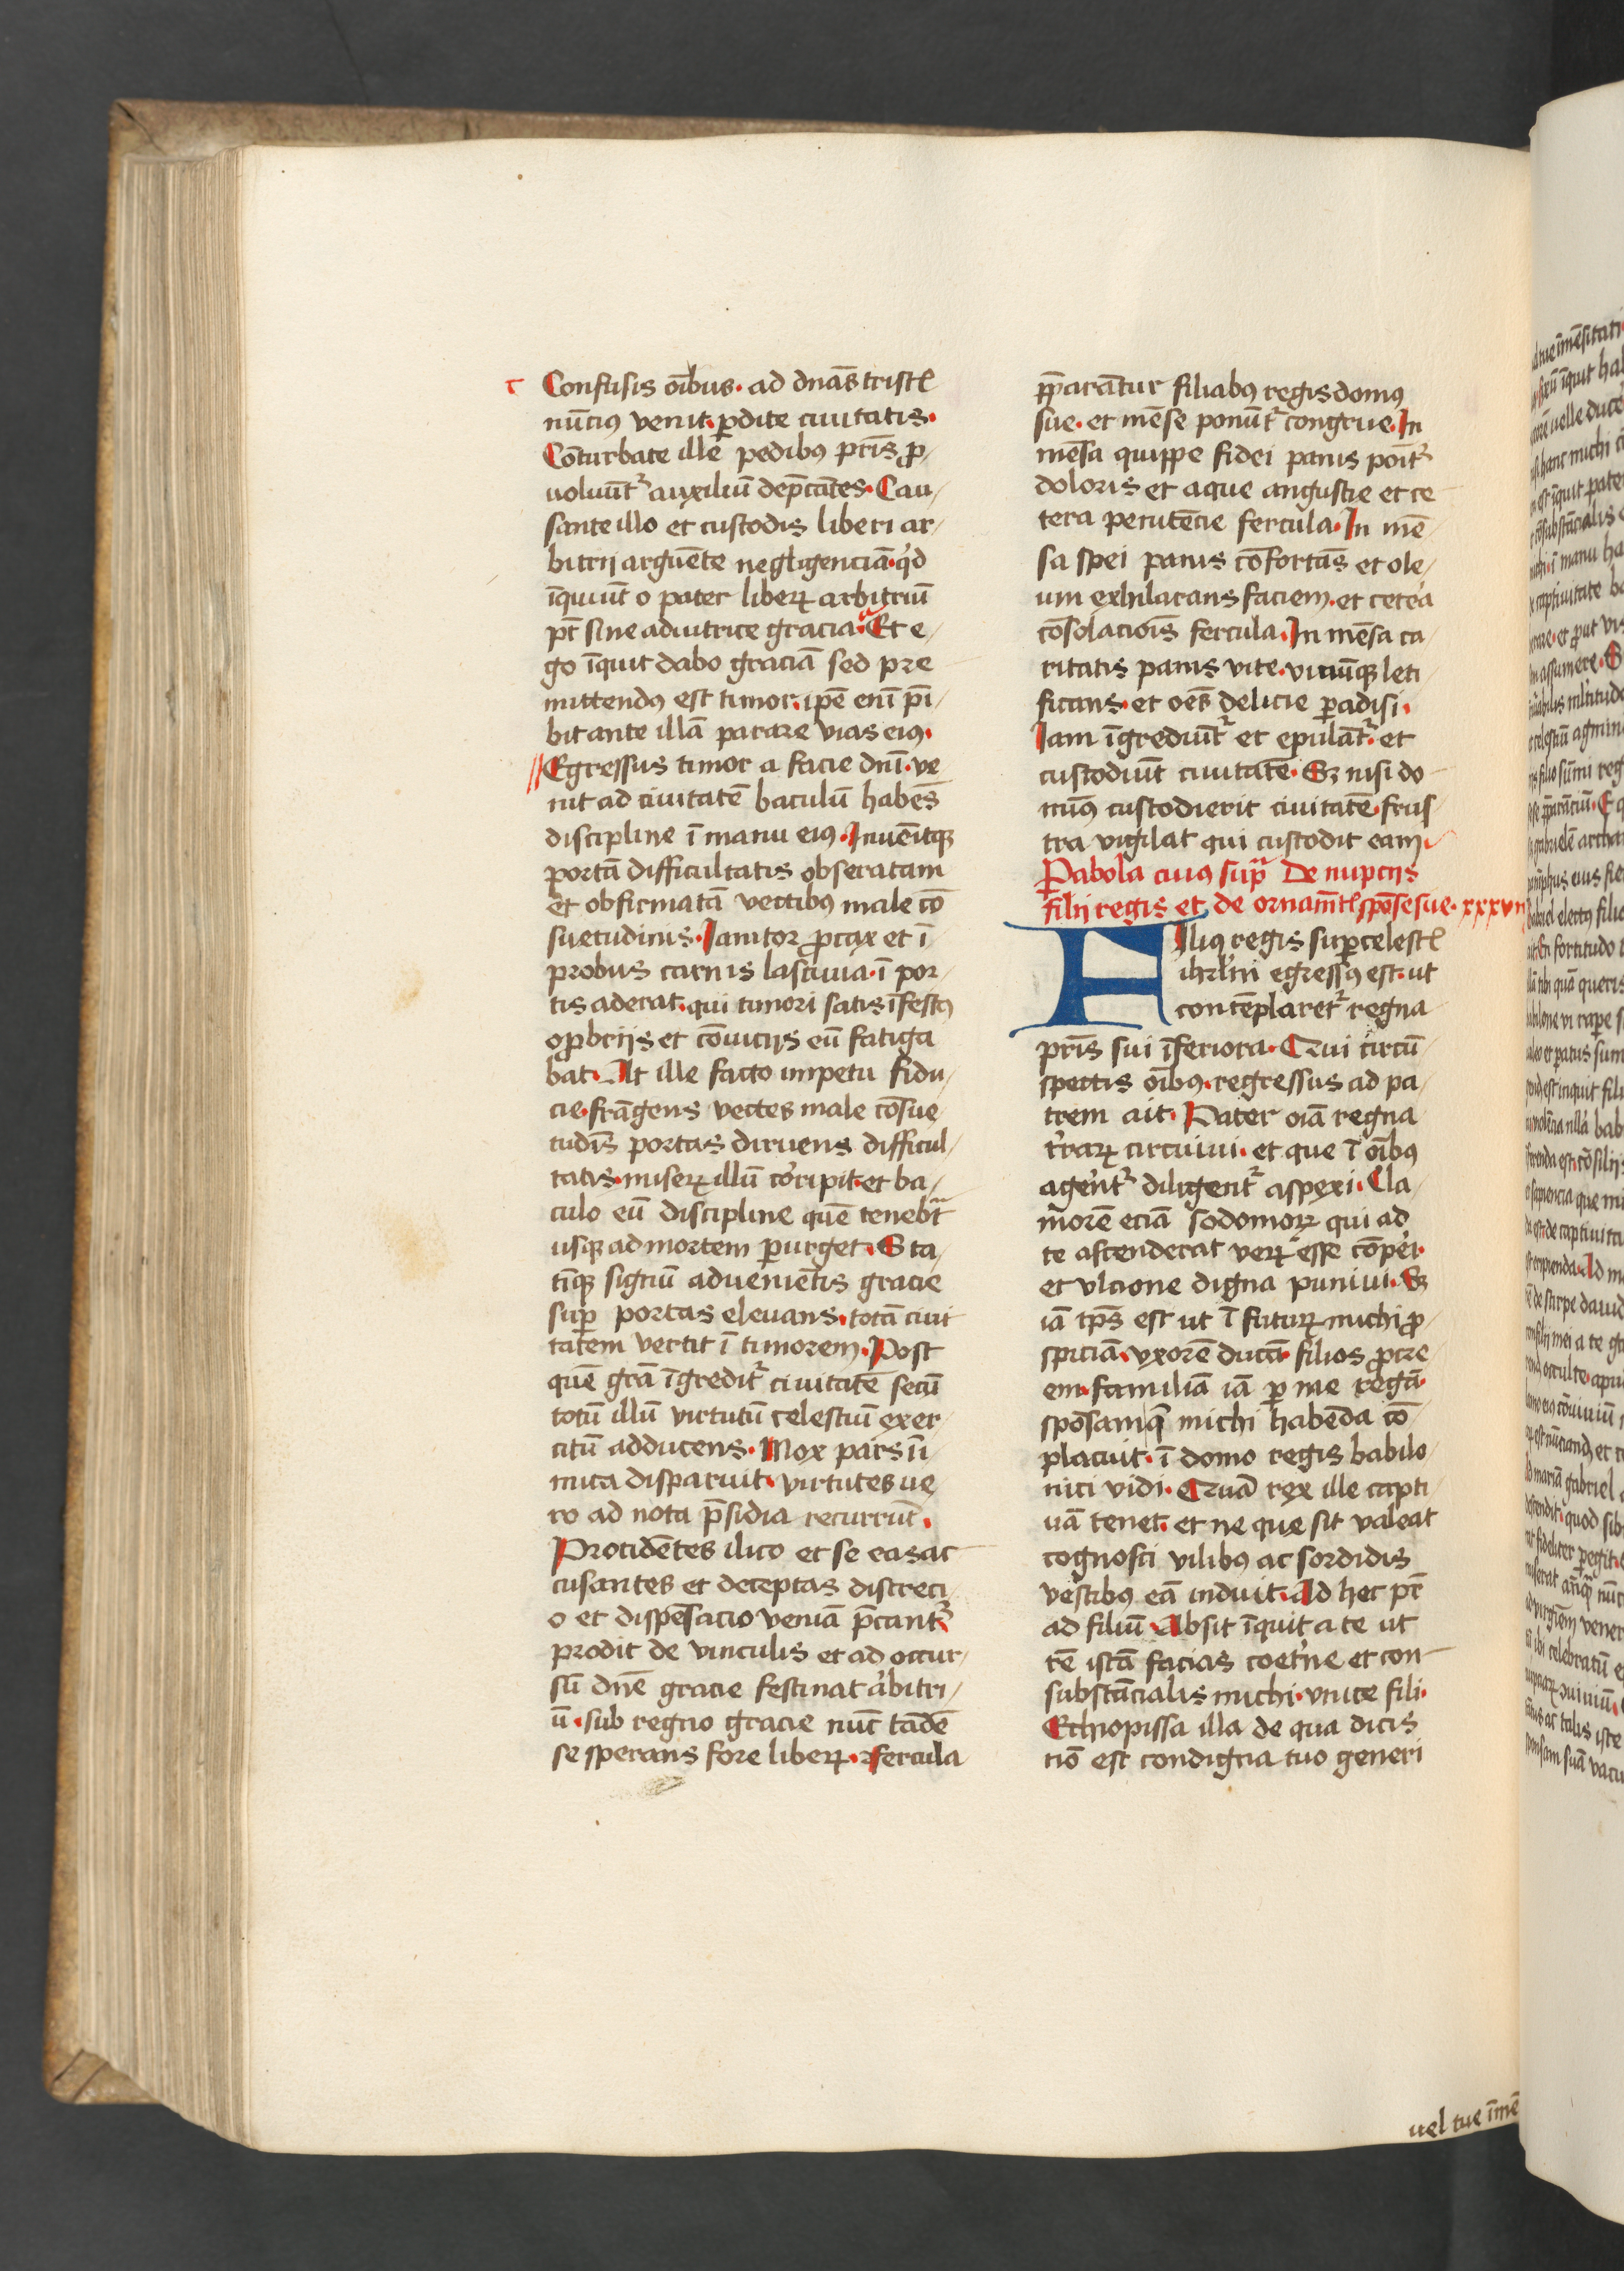 Confusis oībus. ad dnās tristꝭ
nūciꝰ venit. ꝑdite ciuitatis.
Cōturbate ille pedibꝰ pr̄is ꝓ
uoluūt᷑ auxiliū dep̄cātes. Cau
sante illo et custodis liberi ar
bitrij arguēte negligenciā. qd
īquiūt o pater liberꝝ arbitriū
pt̄ sine adiutrice gracia. Et e
go īquit dabo graciā sed pre
mittendꝰ est timor. ip̄e eni p̄i
bit ante illā parare vias eiꝰ.
Egressus timor a facie dnī. ve
nit ad ciuitatē baculū habēs
discipline ī manu eiꝰ. Inuēitqꝫ
portā difficultatis obseratam
et obfirmatā vectibꝰ male cō
suetudinis. Ianitor ꝓcax et ī
probus carnis lasciuia. ī por
tis aderat. qui timori satis īfestꝰ
oꝓbrijs et cōuicijs eū fatiga
bat. At ille facto impetu fidu
cie. frāgens vectes male cōsue
tudīs portas diruens difficul
tatis. miserꝝ illū cōripit. et ba
culo eū discipline quē tenebt᷑
usqꝫ ad mortem ꝑurget. Sta
tīqꝫ signū aduenietis gracie
suꝑ portas eleuans. totā ciui
tatem vertit ī timorem. Post
quē grā īgredit᷑ ciuitatē secū
totū illū virtutū celestiū exer
citū adducens. Mox pars ī
mica disparuit. virtutes ve
ro ad nota p̄sidia recurrūt.
Procidētes ilico et se eas ac
cusantes et deceptas discreci
o et dispēsacio veniā p̄cant᷑
prodit de vinculis et ad occur
sū dnē gracie festinat arbitri
ū. sub regno gracie nūc tādē
se sperans fore liberꝝ. fercula
p̄parātur filiabꝰ regis domꝰ
sue. et mēse ponūt᷑ congrue. In
mēsa quippe fidei panis poīt᷑
doloris et aque angustie et ce
tera penitēcie fercula. In mē
sa spei panis cōfortās et ole
um exhilarans faciem. et cetea
cōsolacōis fercula. In mēsa ca
ritatis panis vite. vinūqꝫ leti
ficans. et oēs delicie ꝑadisi.
Iam īgrediūt᷑ et epulāt᷑. et
custodiūt ciuitatē. Sꝫ nisi do
minꝰ custodierit ciuitatē. frus
tra vigilat qui custodit eam.
Pabola cuiꝰ sup̄ De nupcijs
filij regis et de ornamtꝭ spōse sue. xxxvij
Filiꝰ regis suꝑcelestꝭ
ihrl̄m egressꝰ est. ut
contēplaret᷑ regna
pr̄is sui īferiora. Qui circū
spectis oībꝰ. regressus ad pa
trem ait. Pater oīa regna
t̄rarꝝ circuiui. et que ī oībꝰ
agent᷑ diligent᷑ aspexi. Cla
morē eciā sodomorꝝ qui ad
te ascenderat verꝝ esse cōperi.
et vlcione digna puniui. Sꝫ
iā tp̄s est ut ī futurꝝ michi ꝓ
spiciā. vxorē ducā. filios ꝓcre
em. familiā iā ꝑ me regā.
spōsamqꝫ michi habēda cō
placuit. ī domo regis babilo
nici vidi. Quā rex ille capti
uā tenet. et ne que sit valeat
cognosci vilibꝰ ac sordidis
vestibꝰ eā induit. Ad hec pr̄
ad filiū. Absit īquit a te ut
rē istā facias coetne et con
substācialis michi. vnice fili.
Ethiopissa illa de qua dicis
nō est condigna tuo generi
uel tue īmē